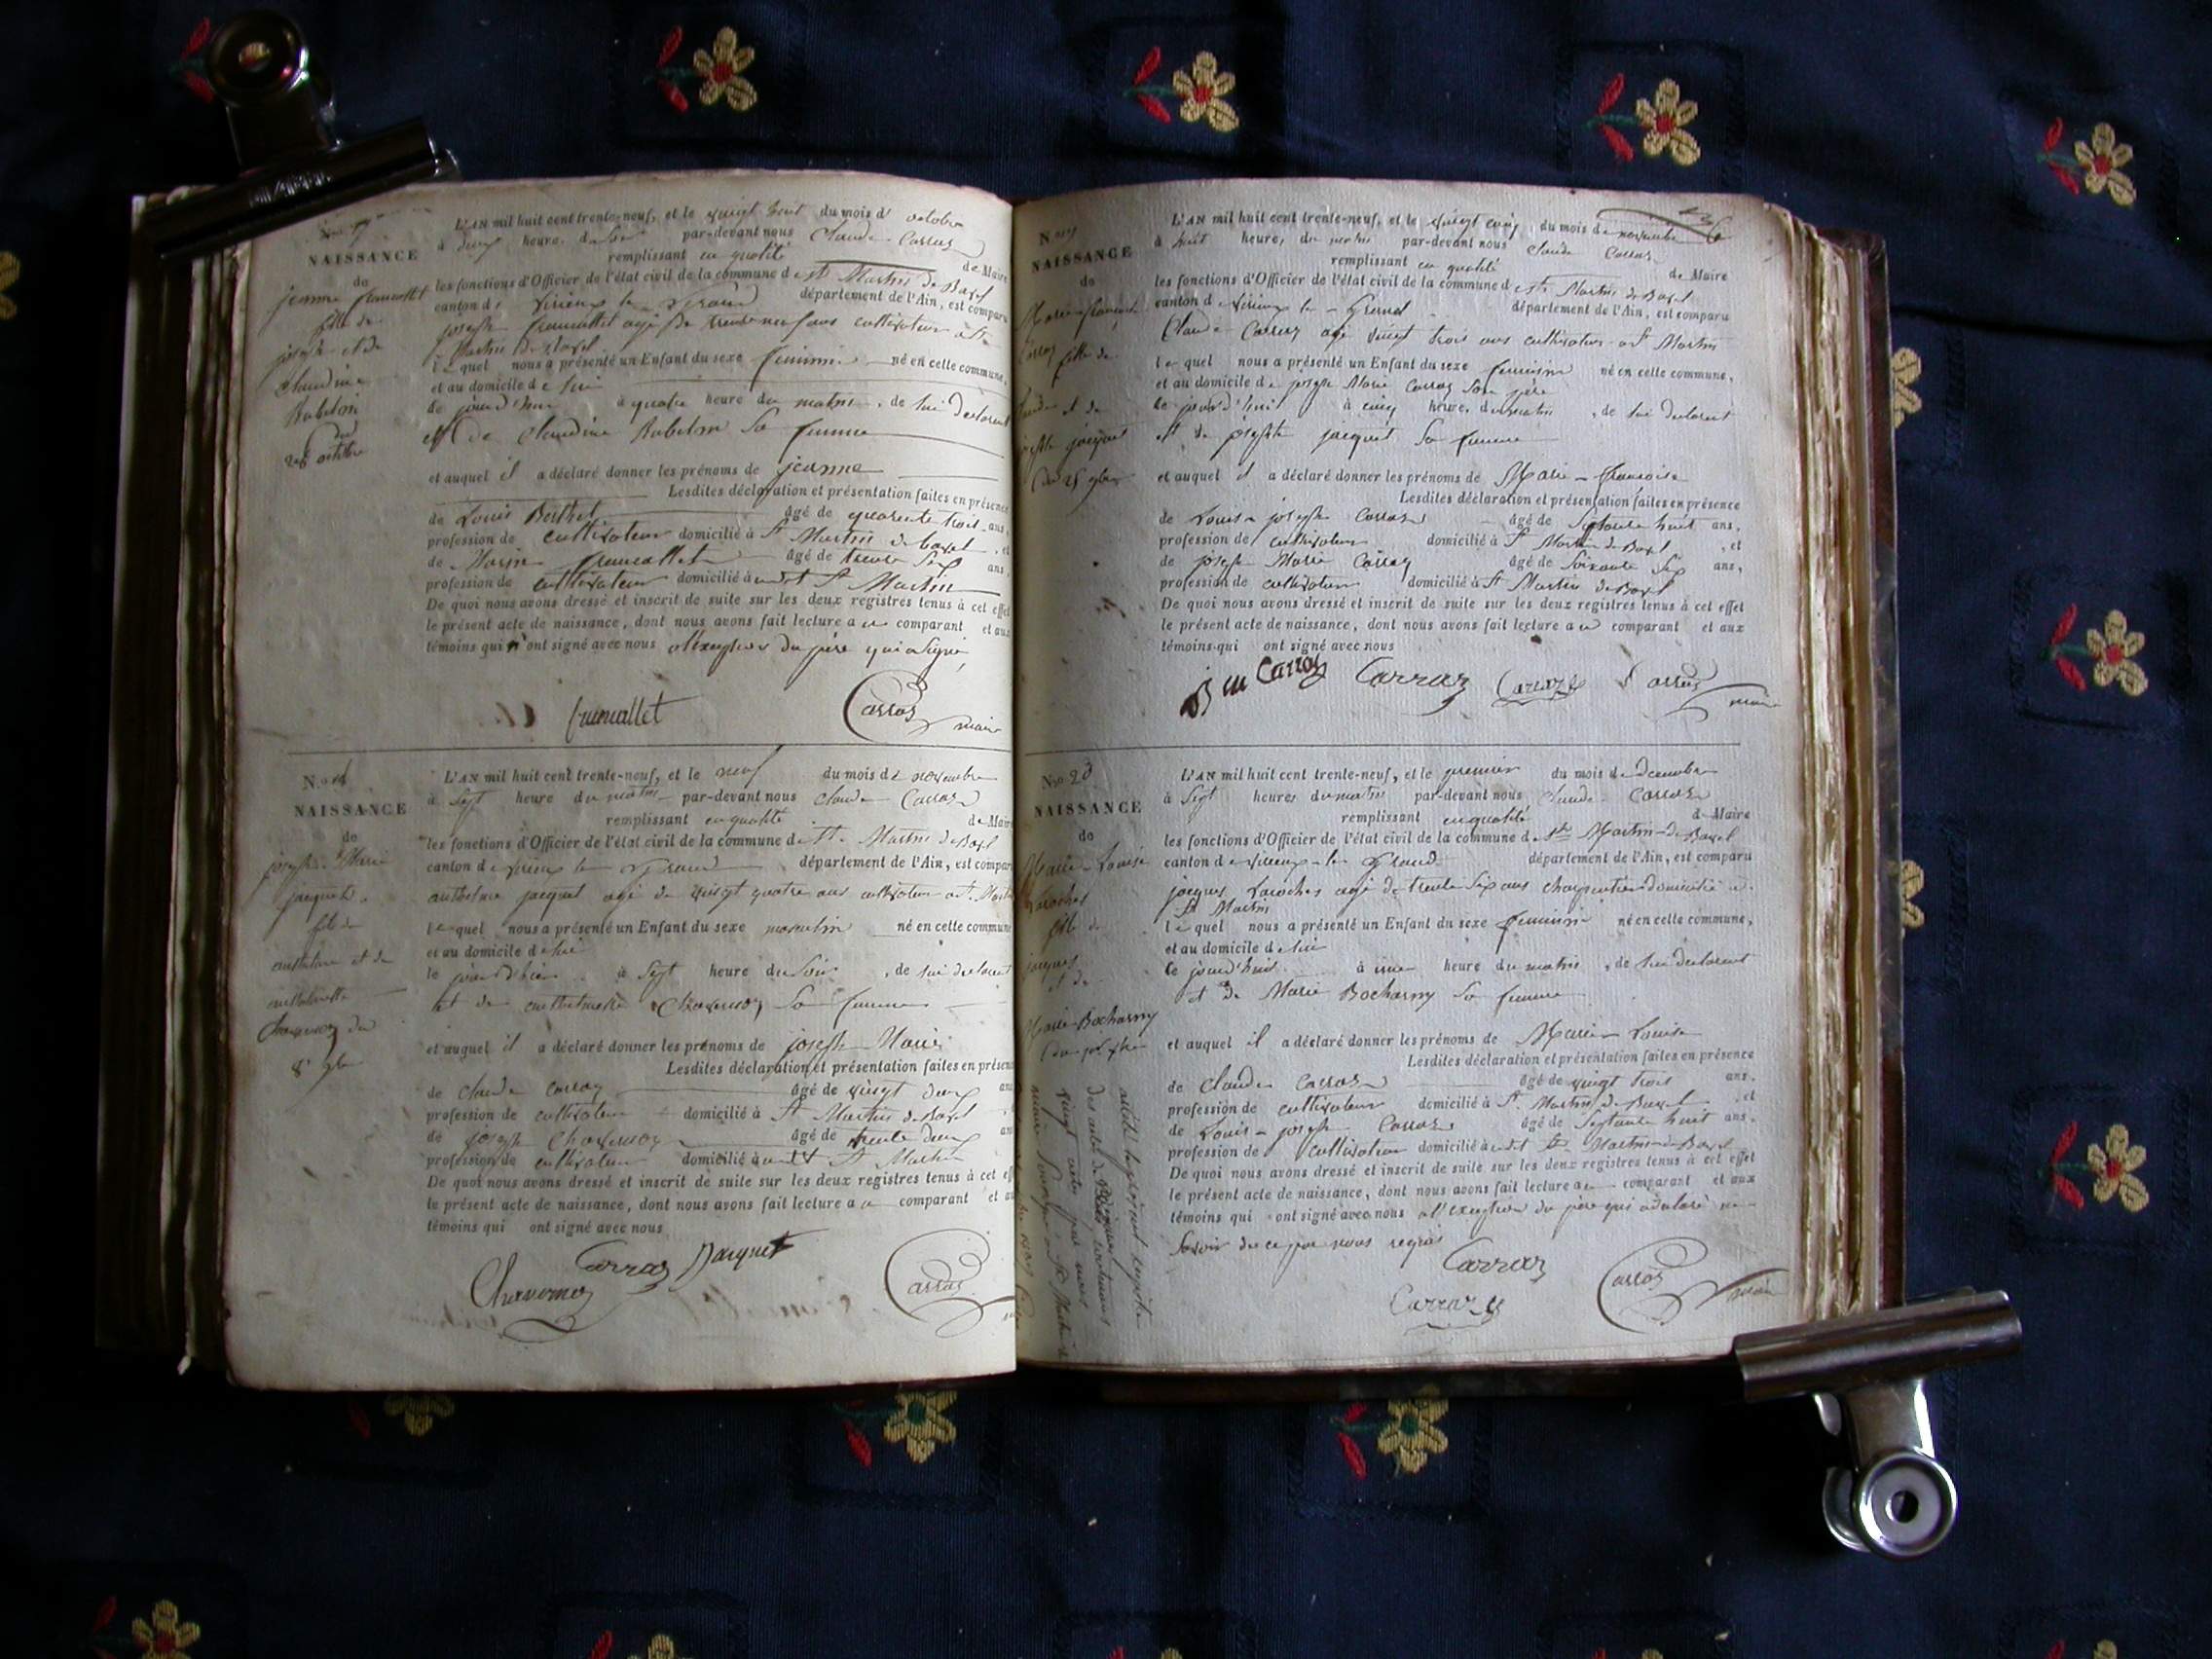 NAISSANCE
de
jeanne frumallet
fille de
joseph et de
claudine
Rubelin
du
28 octobre
L'AN mil huit cent trente-neuf, et le vingt huit du mois d' octobre
à deux heure du Soir par-devant nous Claude Carraz
remplissant en qualité de Maire
les fonctions d'Officier de l'état civil de la commune de St Martin de Bavel
canton de virieux le grand département de l'Ain, est comparu
joseph frumallet agé de trente neuf ans cultivateur à St
Martin de Bavel
lequel nous a présenté un Enfant du sexe feminin né en cette commune,
et au domicile de lui
le jourd'hui à quatre heure du matin, de lui declarant
et de Claudine Rubelin Sa femme
et auquel il a déclaré donner les prénoms de jeanne
Lesdites déclaration et présentation faites en présence
de Louis Berthet âgé de quarante trois ans,
profession de cultivateur domicilié à St Martin de bavel, et
de Marin frumallet âgé de trente Six ans,
profession de cultivateur domicilié à udit St Martin
De quoi nous avons dressé et inscrit de suite sur les deux registres tenus à cet effet
le présent acte de naissance, dont nous avons fait lecture au comparant et aux
témoins qui n'ont signé avec nous a l'exception du père qui a Signé
frumallet Carraz maire
NAISSANCE
de
joseph Marie
jacquet
fils de
anthelme et de
Chavernoz du
8 9bre
L'AN mil huit cent trente-neuf, et le neuf du mois de novembre
à Sept heure du matin par-devant nous Claude Carraz
remplissant en qualité de Maire
les fonctions d'Officier de l'état civil de la commune de St Martin de Bavel
canton de virieux le grand département de l'Ain, est comparu
anthelme jacquet agé de vingt quatre ans cultivateur à St Martin
lequel nous a présenté un Enfant du sexe masculin né en cette commune
et au domicile de lui
le jour d'hier à Sept heure du Soir, de lui declarant
et de Chavernoz Sa femme
et auquel il a déclaré donner les prénoms de joseph Marie
Lesdites déclaration et présentation faites en présence
de claude carraz âgé de vingt deux ans
profession de cultivateur domicilié à St Martin de Bavel
de joseph Chavernoz âgé de trente deux ans
profession de cultivateur domicilié à udit St Martin
De quoi nous avons dressé et inscrit de suite sur les deux registres tenus à cet eff
le présent acte de naissance, dont nous avons fait lecture au comparant et au
témoins qui ont signé avec nous
Carraz Jacquet
Chavernoz Carraz
NAISSANCE
de
Marie françoise
Carraz
fille de
Claude et de
josephte jacquet
du 25 9bre
L'AN mil huit cent trente-neuf, et le vingt cinq du mois de novembre
à huit heure, du matin par-devant nous Claude Carraz
remplissant en qualité de Maire
les fonctions d'Officier de l'état civil de la commune de St Martin de Bavel
canton de virieux le Grand département de l'Ain, est comparu
Claude Carraz agé vingt trois ans cultivateur à St Martin
lequel nous a présenté un Enfant du sexe feminin né en cette commune,
et au domicile de joseph Marie Carraz Son père
le jourd'hui à cinq heure, du matin, de lui declarant
et de josephte jacquet Sa femme
et auquel il a déclaré donner les prénoms de Marie - françoise
Lesdites déclaration et présentation faites en présence
de Louis - joseph Carraz âgé de Septante huit ans,
profession de cultivateur domicilié à St Martin de Bavel, et
de joseph Marie Carraz âgé de Soixante Six ans,
profession de cultivateur domicilié à St Martin de Bavel
De quoi nous avons dressé et inscrit de suite sur les deux registres tenus à cet effet
le présent acte de naissance, dont nous avons fait lecture au comparant et aux
témoins qui ont signé avec nous
Carraz Carraz Carraz Carraz maire
No 20
NAISSANCE
de
Marie - Louise
Laroches
fille de
jacques
et de
Marie Bocharny
L'AN mil huit cent trente-neuf, et le premier du mois de decembre
à Sept heures du matin par-devant nous Claude Carraz
remplissant en qualité de Maire
les fonctions d'Officier de l'état civil de la commune de St Martin-de-Bavel
canton de virieux - le Grand département de l'Ain, est comparu
jacques Laroches agé de trente Six ans charpentier domicilié à
St Martin
lequel nous a présenté un Enfant du sexe feminin né en cette commune,
et au domicile de lui
le jourd'hui à une heure du matin, de lui declarant
et de Marie Bocharny Sa femme
et auquel il a déclaré donner les prénoms de Marie - Louise
Lesdites déclaration et présentation faites en présence
de Claude Carraz âgé de vingt trois ans,
profession de cultivateur domicilié à St Martin de Bavel, et
de Louis - joseph Carraz âgé de Septante huit ans,
profession de cultivateur domicilié à udit St Martin-de-Bavel
De quoi nous avons dressé et inscrit de suite sur les deux registres tenus à cet effet
le présent acte de naissance, dont nous avons fait lecture au comparant et aux
témoins qui ont signé avec nous a l'exception du père qui a déclaré ne
Savoir de ce par nous requis
Carraz
Carraz Carraz maire